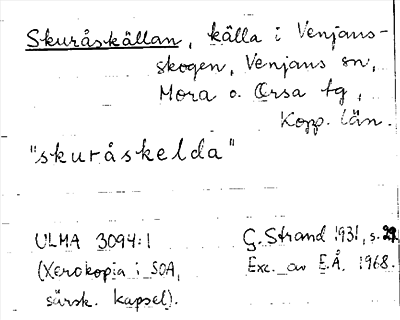 Skuråskällan, källa i Venjans-
skogen, Venjans sn,
Mora o. Orsa tg,
Kopp. län.
"skuråskelda"
ULMA 3094:1 G. Strand 1931, s. 29.
(Xerokopia i SOA, Exc. av E.Å. 1968.
särsk. kapsel).